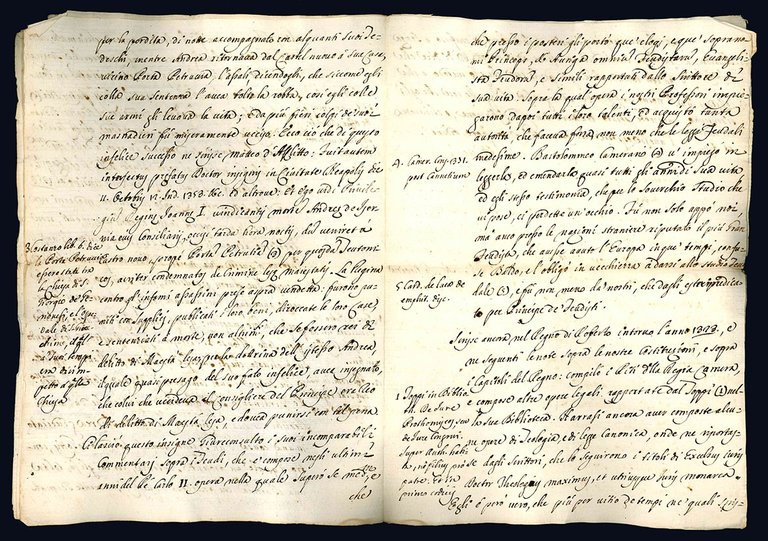 per la perdita, di notte accompagnato con alquanti suoi Te-
deschi, mentre Andrea ritornava dal Castel nuovo a sua Casa,
vicino Porta Petruccia l'assalì dicendogli, che siccome egli
colla sua Sentenza l'avea tolta la robba, così egli colle
sue armi gli levava la vita; e da più fieri colpi de' suoi
masnadieri fu miseramente ucciso. Ecco ciò che di questo
infelice Successo ne scrisse Matteo d'Afflitto: Fuit autem
interfectus prefatus Doctor insignis in Civitate Neapolis die
11. Octobris VI. Ind. 1353. &c. ed altrove: Et ego vidi Privile-
gium Regine Joanne I. vindicantis mortem Andree de Iser-
nia eius Consiliarii, occisi tarda hora noctis, dum veniret a
Castro novo, prope Porta Petrutia (3) per quosdam Teutoni-
cos, acriter condemnatos de crimine lese majestatis. La Regina
contro gl'infami assassini prese aspra vendetta: furono pu-
niti con Supplicj, publicati i loro beni, diroccate le loro Case,
e sentenziati a morte, non altrimenti, che se fossero rei di
delitto di Maestà lesa, per la dottrina dell'istesso Andrea,
il quale quasi presago del suo fato infelice, avea insegnato,
che colui che uccideva il consigliere del Principe era reo
di delitto di Maestà lesa, e dovea punirsi con tal pena
Lasciò questo insigne Giureconsulto i suoi incomparabili
Commentarj sopra i Feudi, che e' compose negli ultimi
anni del Re Carlo II. opera nella quale Superò se med.mo, e
che
3. Costanzo lib. 6. dice
la Porta Petruccia
essere stata tra
la Chiesa di S.
Giorgio de' Ge-
novesi, e l'Ospe-
dale di S. Gioa-
chino, dagl
a suoi tempi
era di rim-
petto a questa
Chiesa
che presso i posteri gli portò que' elogj, e que' Sopranno-
mi Principe, ed Auriga omnium Feudistarum, Evangeli-
sta Feudorum, e simili rapportati dallo Scrittore di
sua vita. Sopra la qual opera i nostri Professori impie-
garono dappoi tutti i loro talenti, ed acquistò tanta
autorità, che faceva forza non meno che le leggi Feudali
medesime. Bartolommeo Camerario (4) v'impiegò in
leggerlo, ed emendarlo quasi tutti gli anni di Sua vita
ed egli stesso testimonia, che per lo Soverchio Studio che
vi pose, ci perdette un'occhio. Fu non solo appo noi,
ma anco presso le nazioni straniere riputato il più gran
Feudista, che avesse avuto l'Europa in que' tempi, confu-
se Baldo, e l'obligò in vecchiezza a darsi allo studio Feu-
dale (5), e fu non meno da' nostri, che dagli esteri predica-
to per Principe de' Feudisti.
Scrisse ancora nel Regno di Roberto intorno l'anno 1323. e
ne' seguenti le note sopra le nostre Costituzioni, e sopra
i Capitoli del Regno: compilò i Riti della Regia Camera,
e compose altre opere legali, rapportate dal Toppi (1) nel-
la Sua Biblioteca. Narrasi ancora aver composte alcu-
ne opere di Teologia, e di legge Canonica, onde ne riportas-
se dagli Scrittori, che lo Seguirono i titoli di Excelsus iuris
Doctor Theologus maximus, et utriusque Juris monarca.
Egli è però vero, che più per vizio de' tempi ne' quali scris-
4. Camer. Imp. 331.
post Cannetium
5. Card. de Luca de
emphit. disc.
1. Toppi in Biblio.
M. De Jure
Prothomyseos seu
de Iure Congrui
Super Authentica